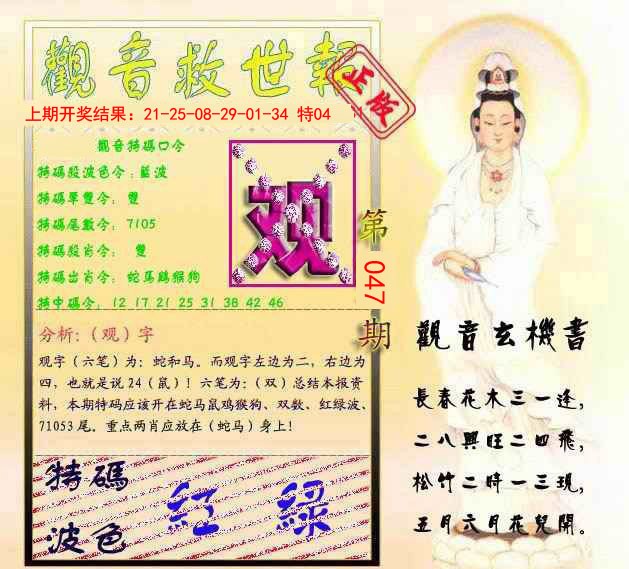 觀音救世報
正版
上期开奖结果：21-25-08-29-01-34 特04
觀音特碼口令
特碼段波色令：藍波
特碼單雙令： 雙
特碼尾數令： 7105
特碼段肖令： 雙
特碼出肖令： 蛇馬鷄猴狗
特中碼令： 12 17 21 25 31 38 42 46
观
第 047 期
分析:（观）字
观字（六笔）为：蛇和马。而观字左边为二，右边为
四，也就是说24（鼠）！六笔为：（双）总结本报资
料，本期特码应该开在蛇马鼠鸡猴狗、双数、红绿波、
71053尾。重点两肖应放在（蛇马）身上！
特碼
波色
紅 綠
觀音玄機書
長春花木三一逢，
二八興旺二四飛，
松竹二時一三現，
五月六月花兒開。